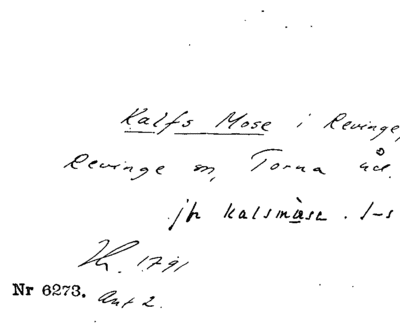 Kalfs Mose i Revinge,
Revinge sn, Torna hd.
jfr kalsmåse. l-s
1791
Nr 6273. Ant 2.